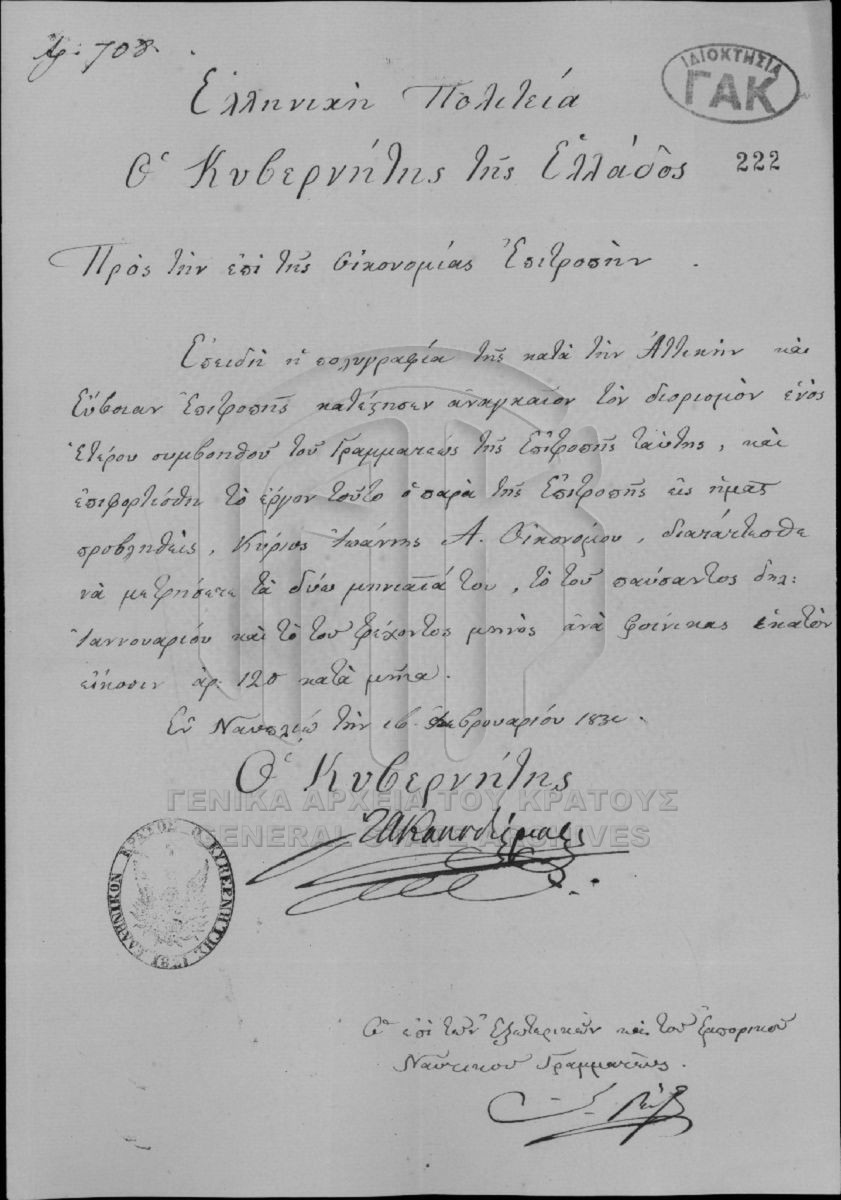 Ἀρ: 708.
ΙΔΙΟΚΤΗΣΙΑ
ΓΑΚ
Ἑλληνικὴ Πολιτεία
222
Ὁ Κυβερνήτης τῆς Ἑλλάδος
Πρὸς τὴν ἐπὶ τῆς Οἰκονομίας Ἐπιτροπὴν.
Ἐπειδὴ ἡ πολυγραφία τῆς κατὰ τὴν Ἀττικὴν καὶ
Εὔβοιαν Ἐπιτροπῆς κατέστησεν ἀναγκαῖον τὸν διορισμὸν ἑνὸς
ἑτέρου συμβοηθοῦ τοῦ Γραμματέως τῆς Ἐπιτροπῆς ταύτης, καὶ
ἐπιφορτίσθη τὸ ἔργον τοῦτο ὁ παρὰ τῆς Ἐπιτροπῆς εἰς ἡμᾶς
προβληθεὶς, Κύριος Ἰωάννης Α. Οἰκονόμου, διατάττεσθε
νὰ μετρήσετε τὰ δύω μηνιαῖά του, τὸ τοῦ παύσαντος δηλ:
Ἰαννουαρίου καὶ τὸ τοῦ τρέχοντος μηνὸς ἀνὰ φοίνικας ἑκατὸν
εἴκοσιν ἀρ: 120 κατὰ μῆνα.
Ἐν Ναυπλίῳ τὴν 16 Φεβρουαρίου
Ὁ Κυβερνήτης
ΓΕΝΙΚΑ ΑΡΧΕΙΑ ΤΟΥ ΚΡΑΤΟΥΣ
GENERAL STATE ARCHIVES
ΕΛΛΗΝΙΚΟΝ ΚΡΑΤΟΣ Ο ΚΥΒΕΡΝΗΤΗΣ
Ὁ ἐπὶ τῶν Ἐξωτερικῶν καὶ τοῦ Ἐμπορικοῦ
Ναυτικοῦ Γραμματεὺς.